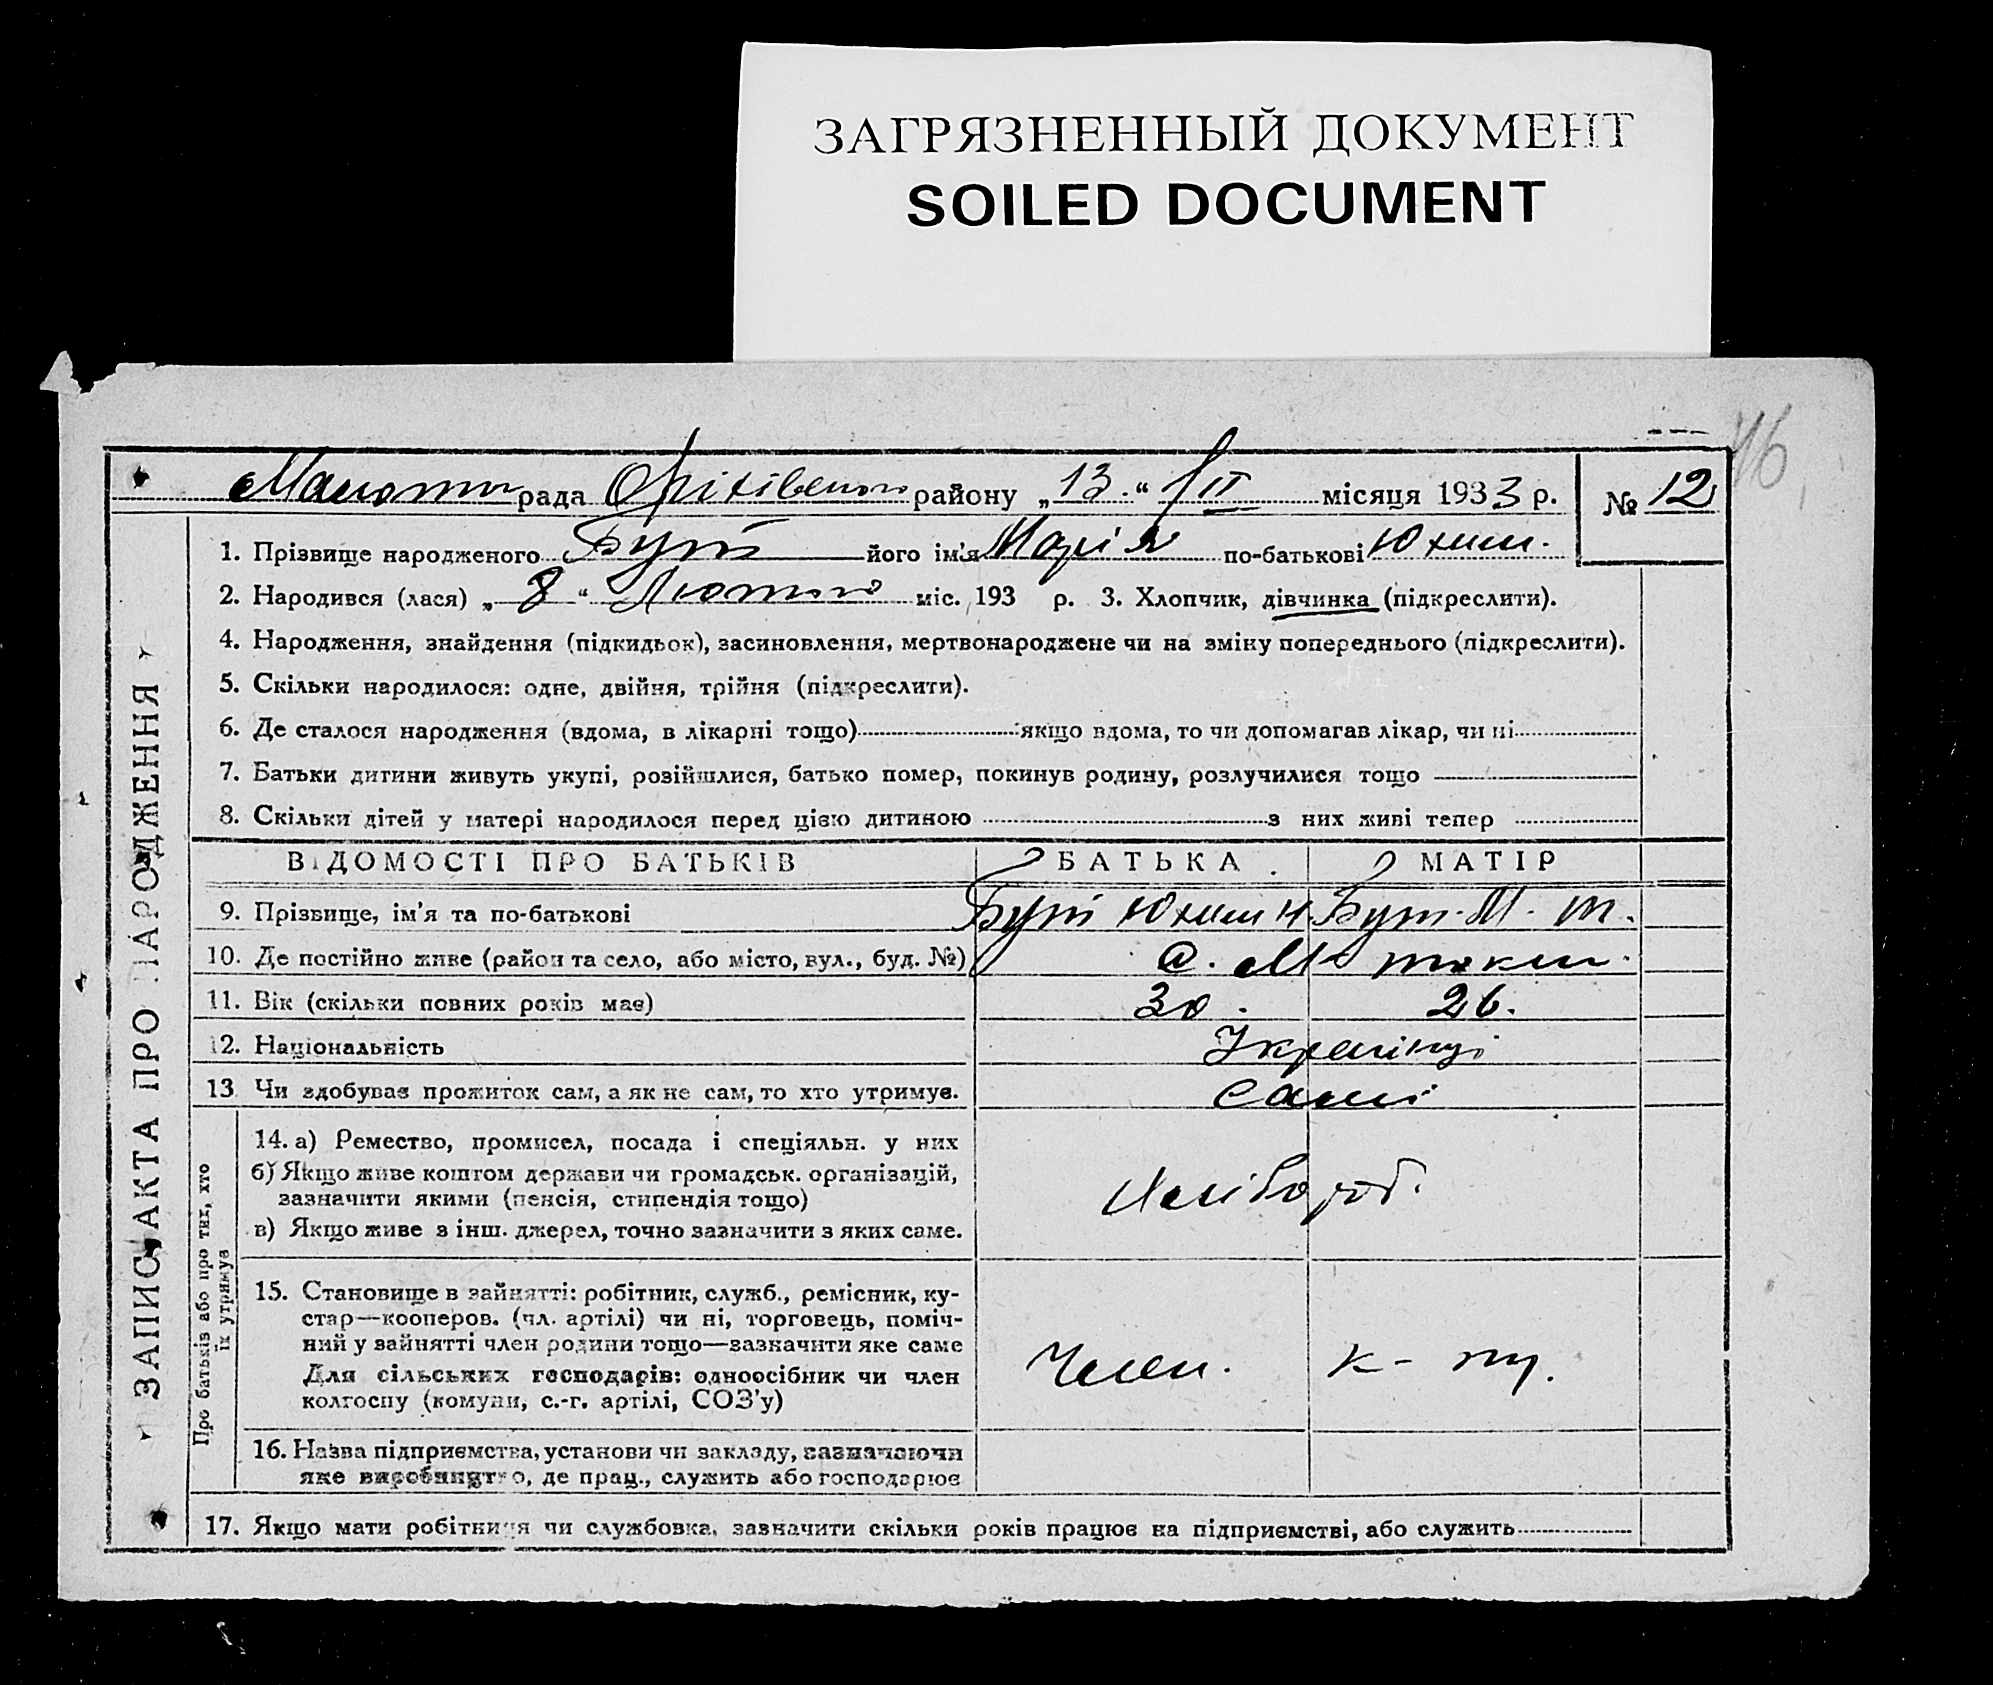 ЗАГРЯЗНЕННЫЙ ДОКУМЕНТ
SOILED DOCUMENT
46
рада Оріхівського району „13.“ місяця 1933 р. № 12
ЗАПИС АКТА ПРО НАРОДЖЕННЯ
1. Прізвище народженого Бут його ім'я Марія по-батькові Юхим.
2. Народився (лася) „8“ Лютого міс. 193 р. 3. Хлопчик, дівчинка (підкреслити).
4. Народження, знайдення (підкидьок), засиновлення, мертвонароджене чи на зміну попереднього (підкреслити).
5. Скільки народилося: одне, двійня, трійня (підкреслити).
6. Де сталося народження (вдома, в лікарні тощо) якщо вдома, то чи допомагав лікар, чи ні
7. Батьки дитини живуть укупі, розійшлися, батько помер, покинув родину, розлучилися тощо
8. Скільки дітей у матері народилося перед цією дитиною з них живі тепер
ВІДОМОСТІ ПРО БАТЬКІВ БАТЬКА МАТІР
9. Прізвище, ім'я та по-батькові Бут Юхим Н. Бут. М. Т.
10. Де постійно живе (район та село, або місто, вул., буд. №) С. М
11. Вік (скільки повних років має) 30. 26.
12. Національність Українці
13 Чи здобував прожиток сам, а як не сам, то хто утримує. Самі
Про батьків або про тих, хто їх утримує
14. а) Ремество, промисел, посада і спеціяльн. у них
б) Якщо живе коштом держави чи громадськ. організацій,
зазначити якими (пенсія, стипендія тощо)
в) Якщо живе з інш. джерел, точно зазначити з яких саме.
Хлібороб.
15. Становище в зайнятті: робітник, служб., ремісник, ку-
стар—кооперов. (чл. артілі) чи ні, торговець, поміч-
ний у зайнятті член родини тощо—зазначити яке саме
Для сільських господарів: одноосібник чи член
колгоспу (комуни, с.-г. артілі, СОЗ'у)
Член. к-пу.
16. Назва підприємства, установи чи закладу, зазначаючи
яке виробництво, де прац., служить або господарює
17. Якщо мати робітниця чи службовка, зазначити скільки років працює на підприємстві, або служить